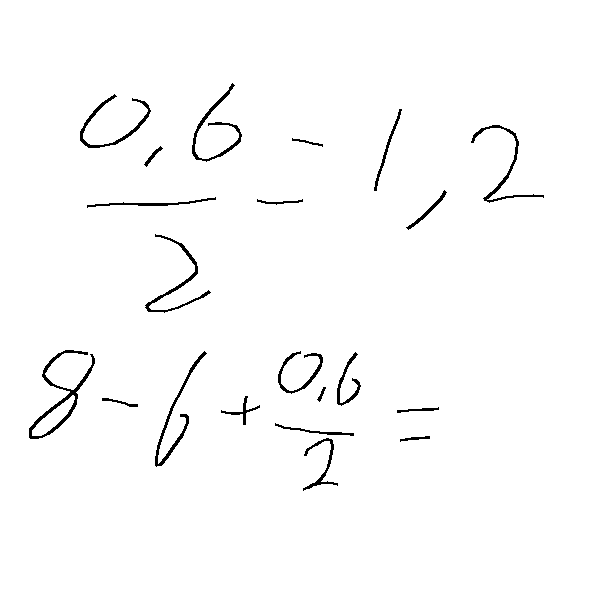 0,6/2 = 1,2
8 - 6 + 0,6/2 =